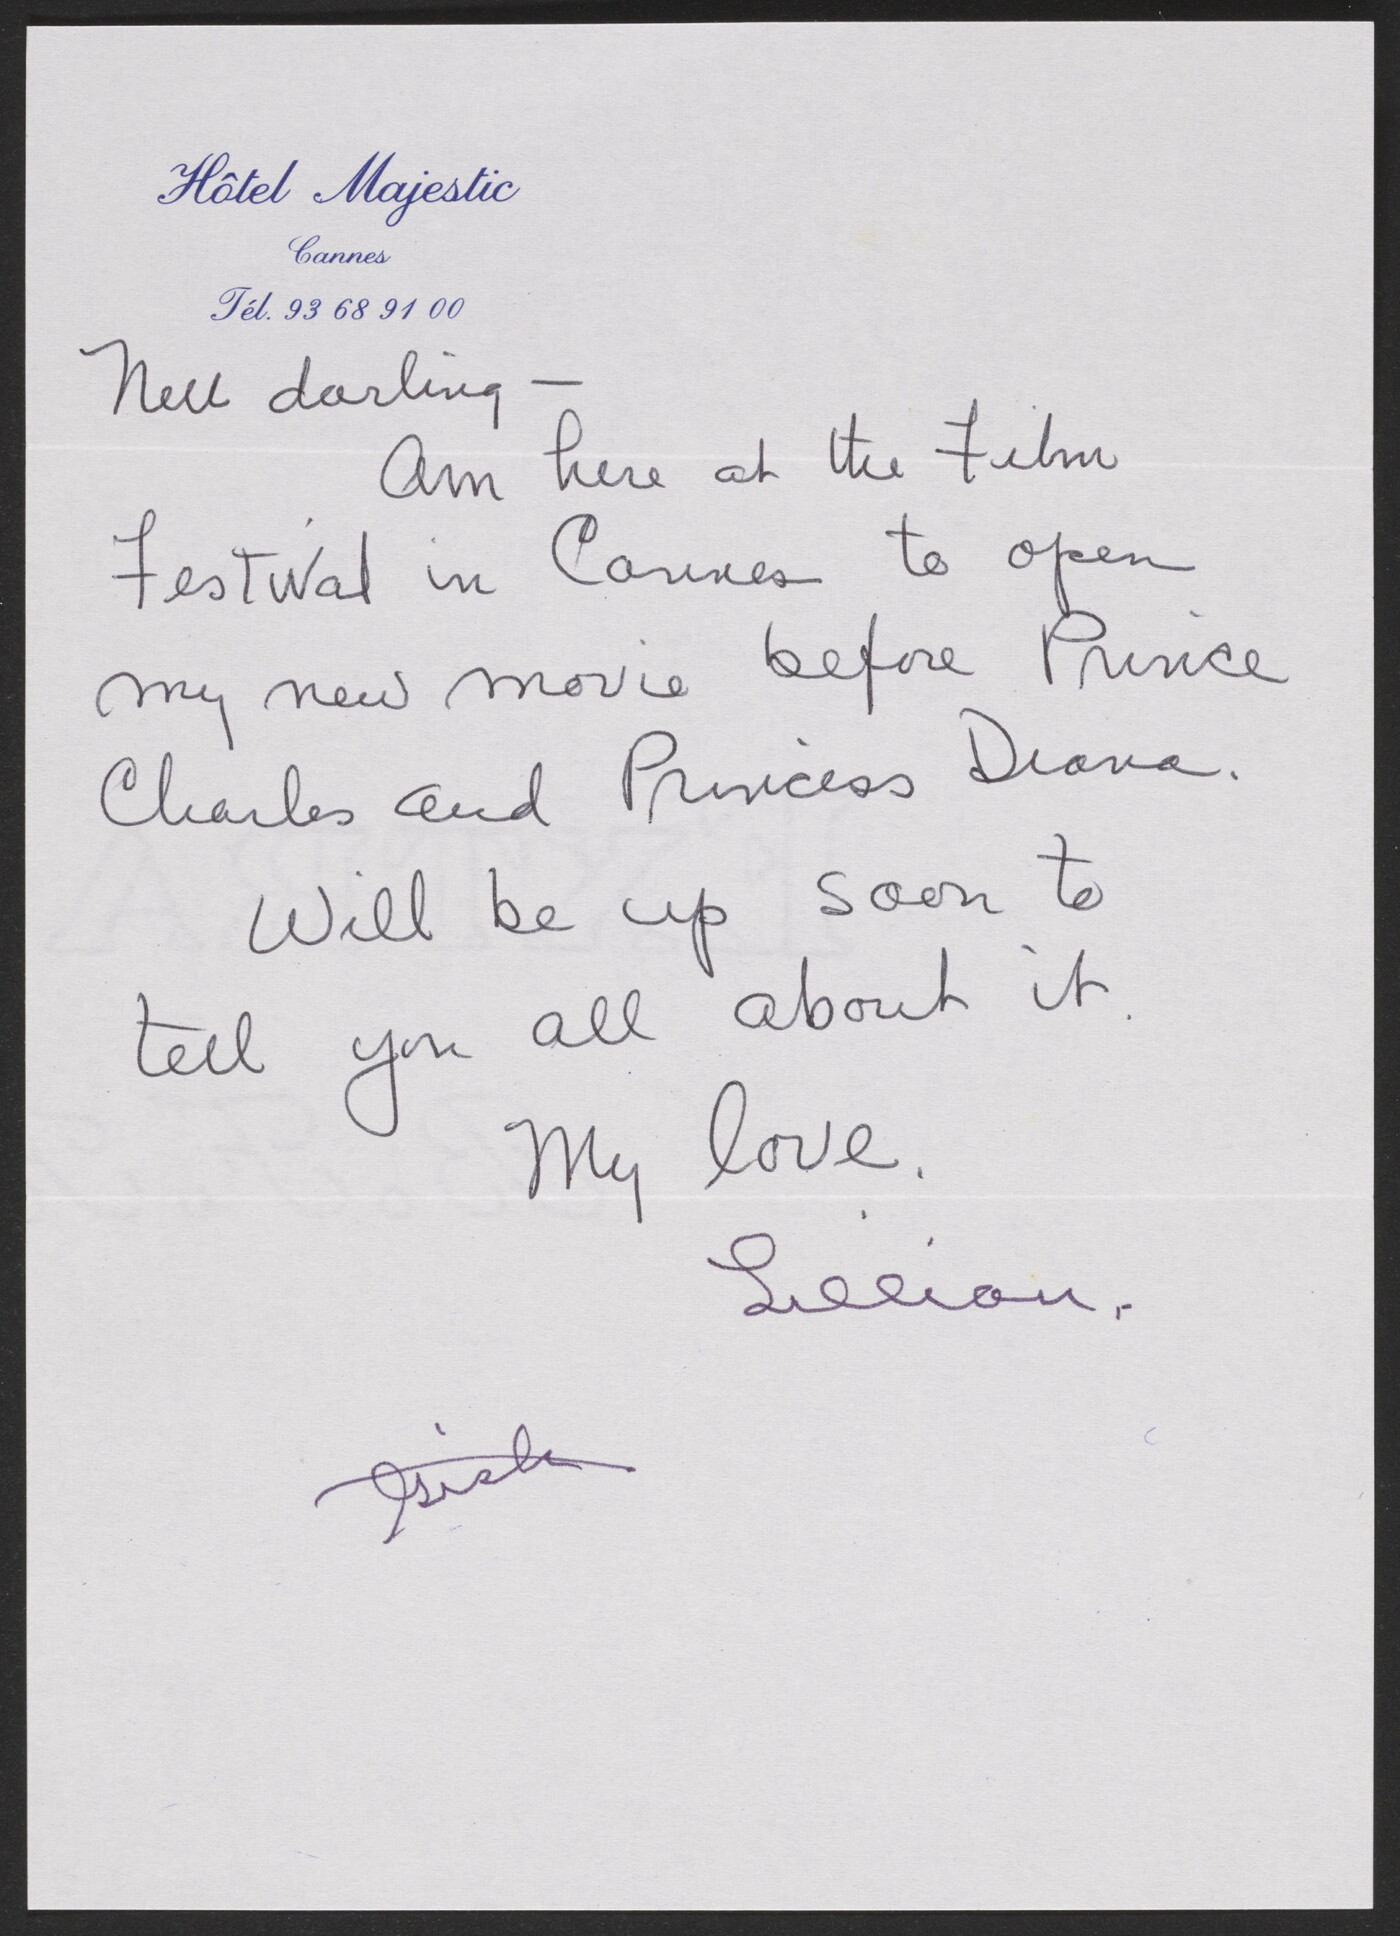 Hôtel Majestic
Cannes
Tél. 93 68 91 00
Nell darling —
Am here at the Film
Festival in Cannes to open
my new movie before Prince
Charles and Princess Diana.
Will be up soon to
tell you all about it.
My love.
Lillian.
Gish